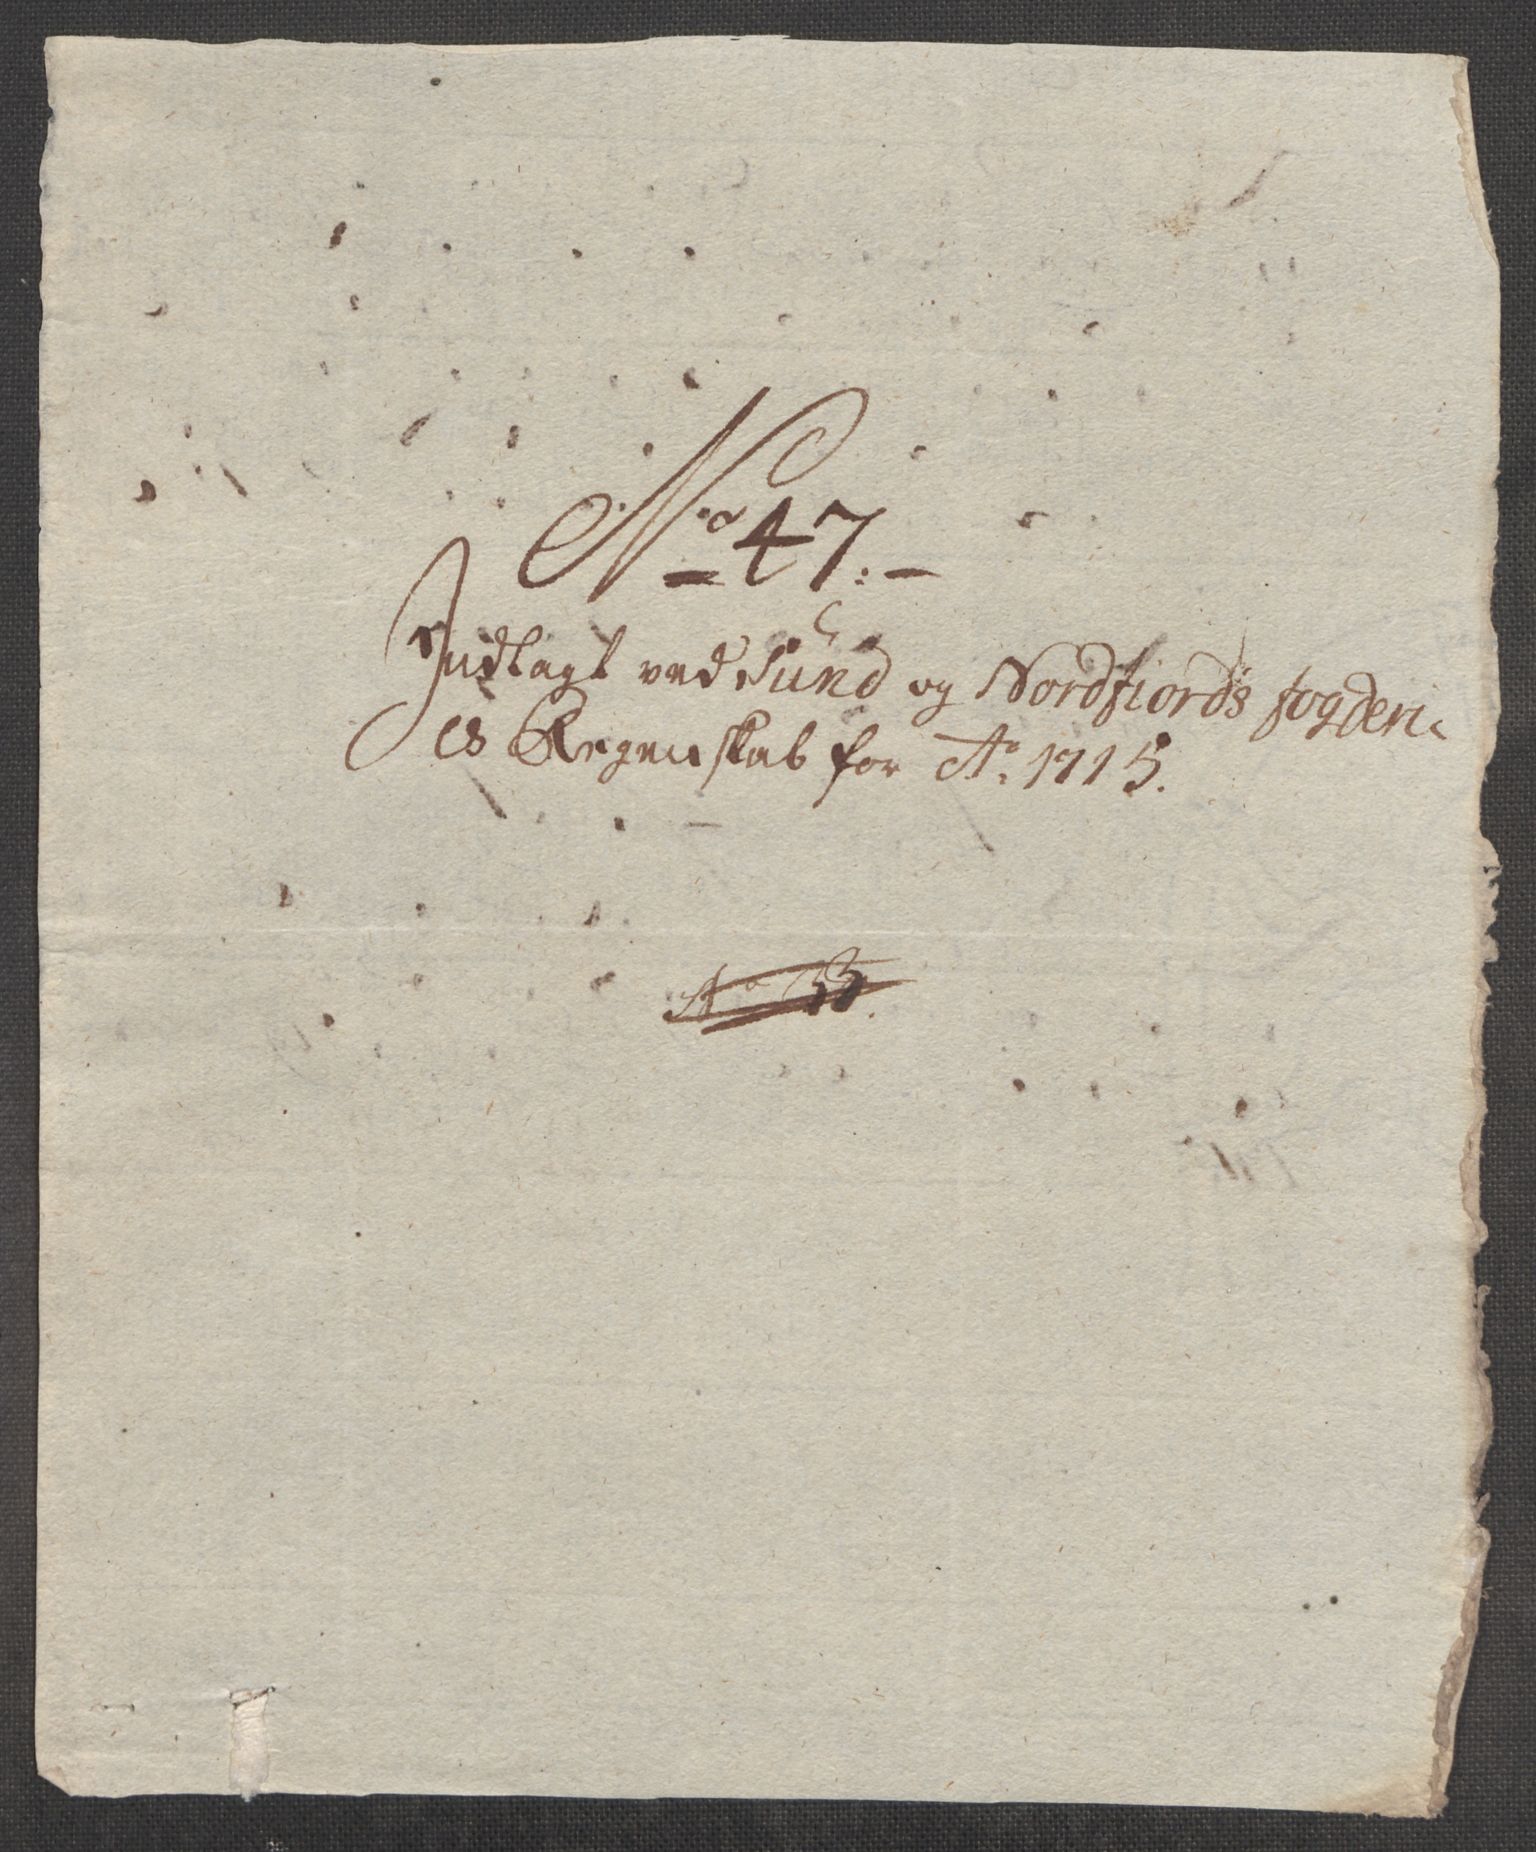 No 47.
Indlagt ved Sund og Nordfiords fogderi-
es Regenskab for Ao. 1715.